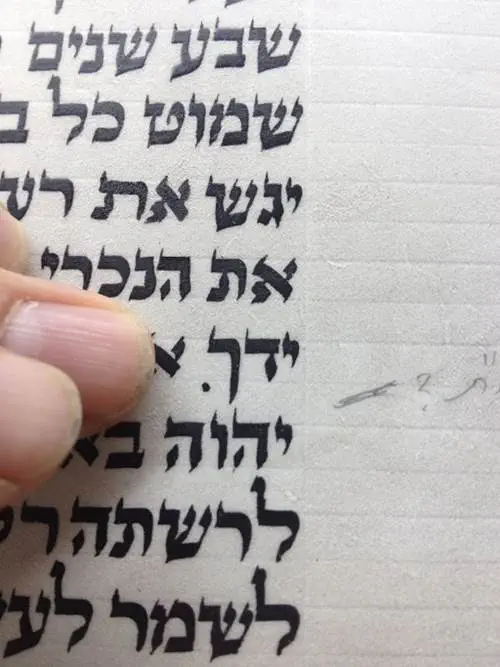 שבע שנים
שמוט כל ב
יגש את רע
את הנכרי
ידך א
יהוה בא
לרשתה רק
לשמר לעש